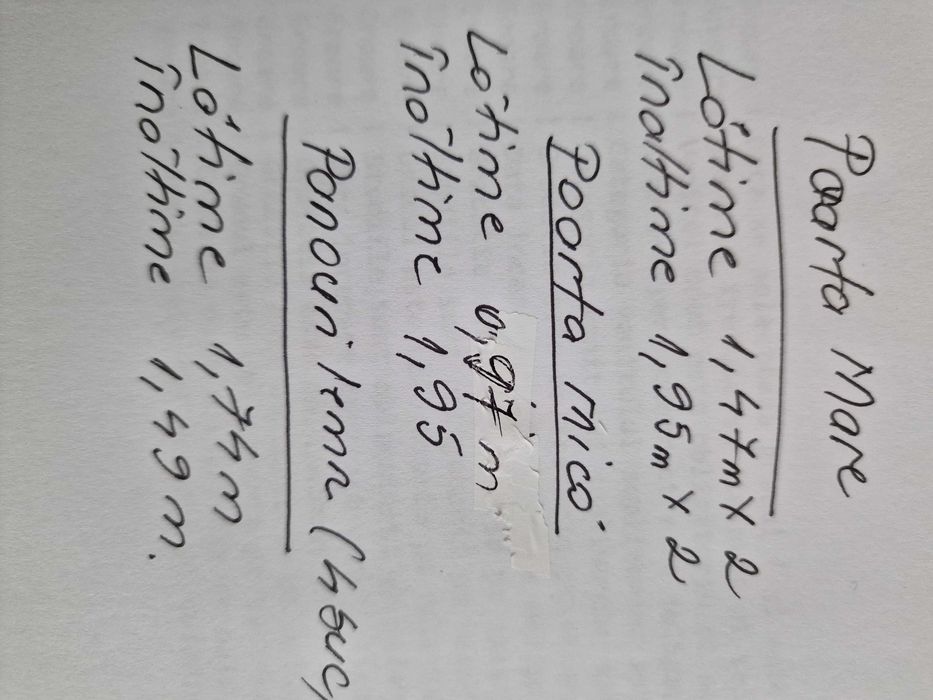 Poarta Mare
Lățime 1,47m x 2
Înaltime 1,95m x 2
Poarta mică
Lățime 0,97m
Înălțime 1,95
Panouri lemn (4 buc,
Lățime 1,74m
Înălțime 1,49m.